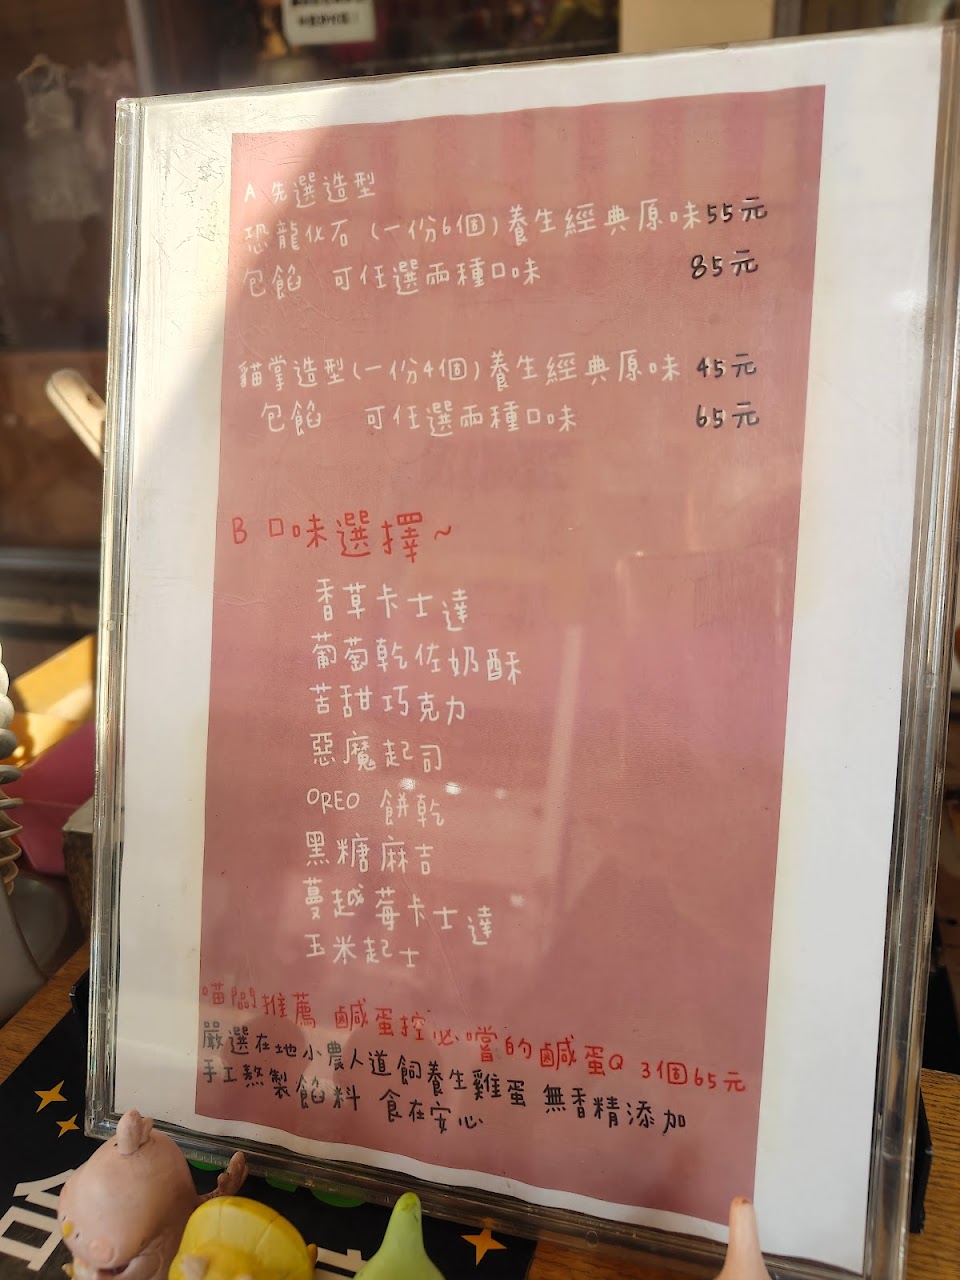 A 先選造型
恐龍化石 (一份6個) 養生經典原味 55元
包餡 可任選兩種口味 85元
貓掌造型 (一份4個) 養生經典原味 45元
包餡 可任選兩種口味 65元
B 口味選擇~
香草卡士達
葡萄乾佐奶酥
苦甜巧克力
惡魔起司
OREO 餅乾
黑糖麻吉
蔓越莓卡士達
玉米起士
推薦 鹹蛋控必嚐的鹹蛋Q 3個65元
嚴選在地小農人道飼養生雞蛋 無香精添加
手工熬製餡料 食在安心